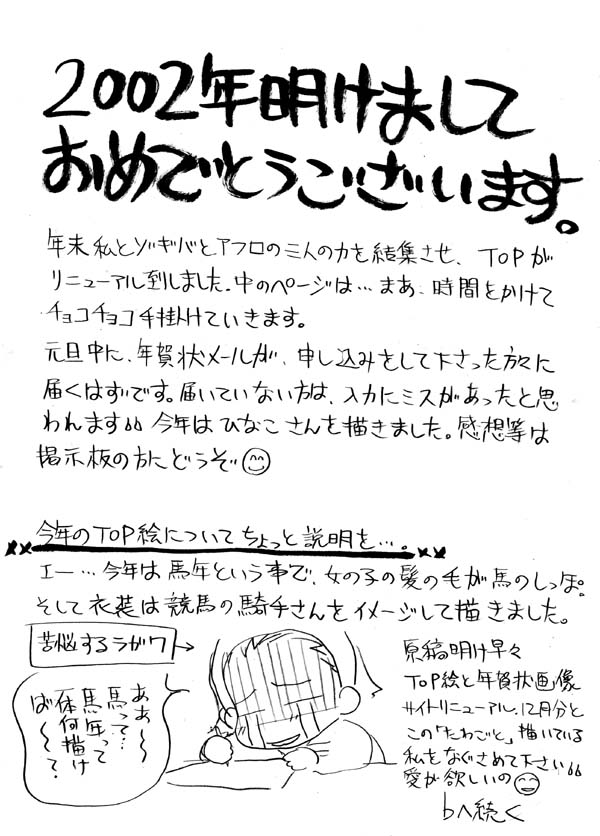 2002年明けまして
おめでとうございます。
年末私とゾギバとアフロの三人の力を結集させ、TOPが
リニューアル到しました。中のページは…まあ、時間をかけて
チョコチョコ手掛けていきます。
元旦中に、年賀状メールが、申し込みをして下さった方々に
届くはずです。届いていない方は、入力にミスがあったと思
われます。今年はひなこさんを描きました。感想等は
掲示板の方にどうぞ
××今年のTOP絵についてちょっと説明を…。××
エー…今年は馬年という事で、女の子の髪の毛が馬のしっぽ。
そして衣装は競馬の騎手さんをイメージして描きました。
苦悩するラガワ→
ああ～
馬って…
馬年って
一体何描け
ば～～?
原稿明け早々
TOP絵と年賀状画像
サイトリニューアル、12月分と
この「たわごと」描いている
私をなぐさめて下さい
愛が欲しいの
bへ続く